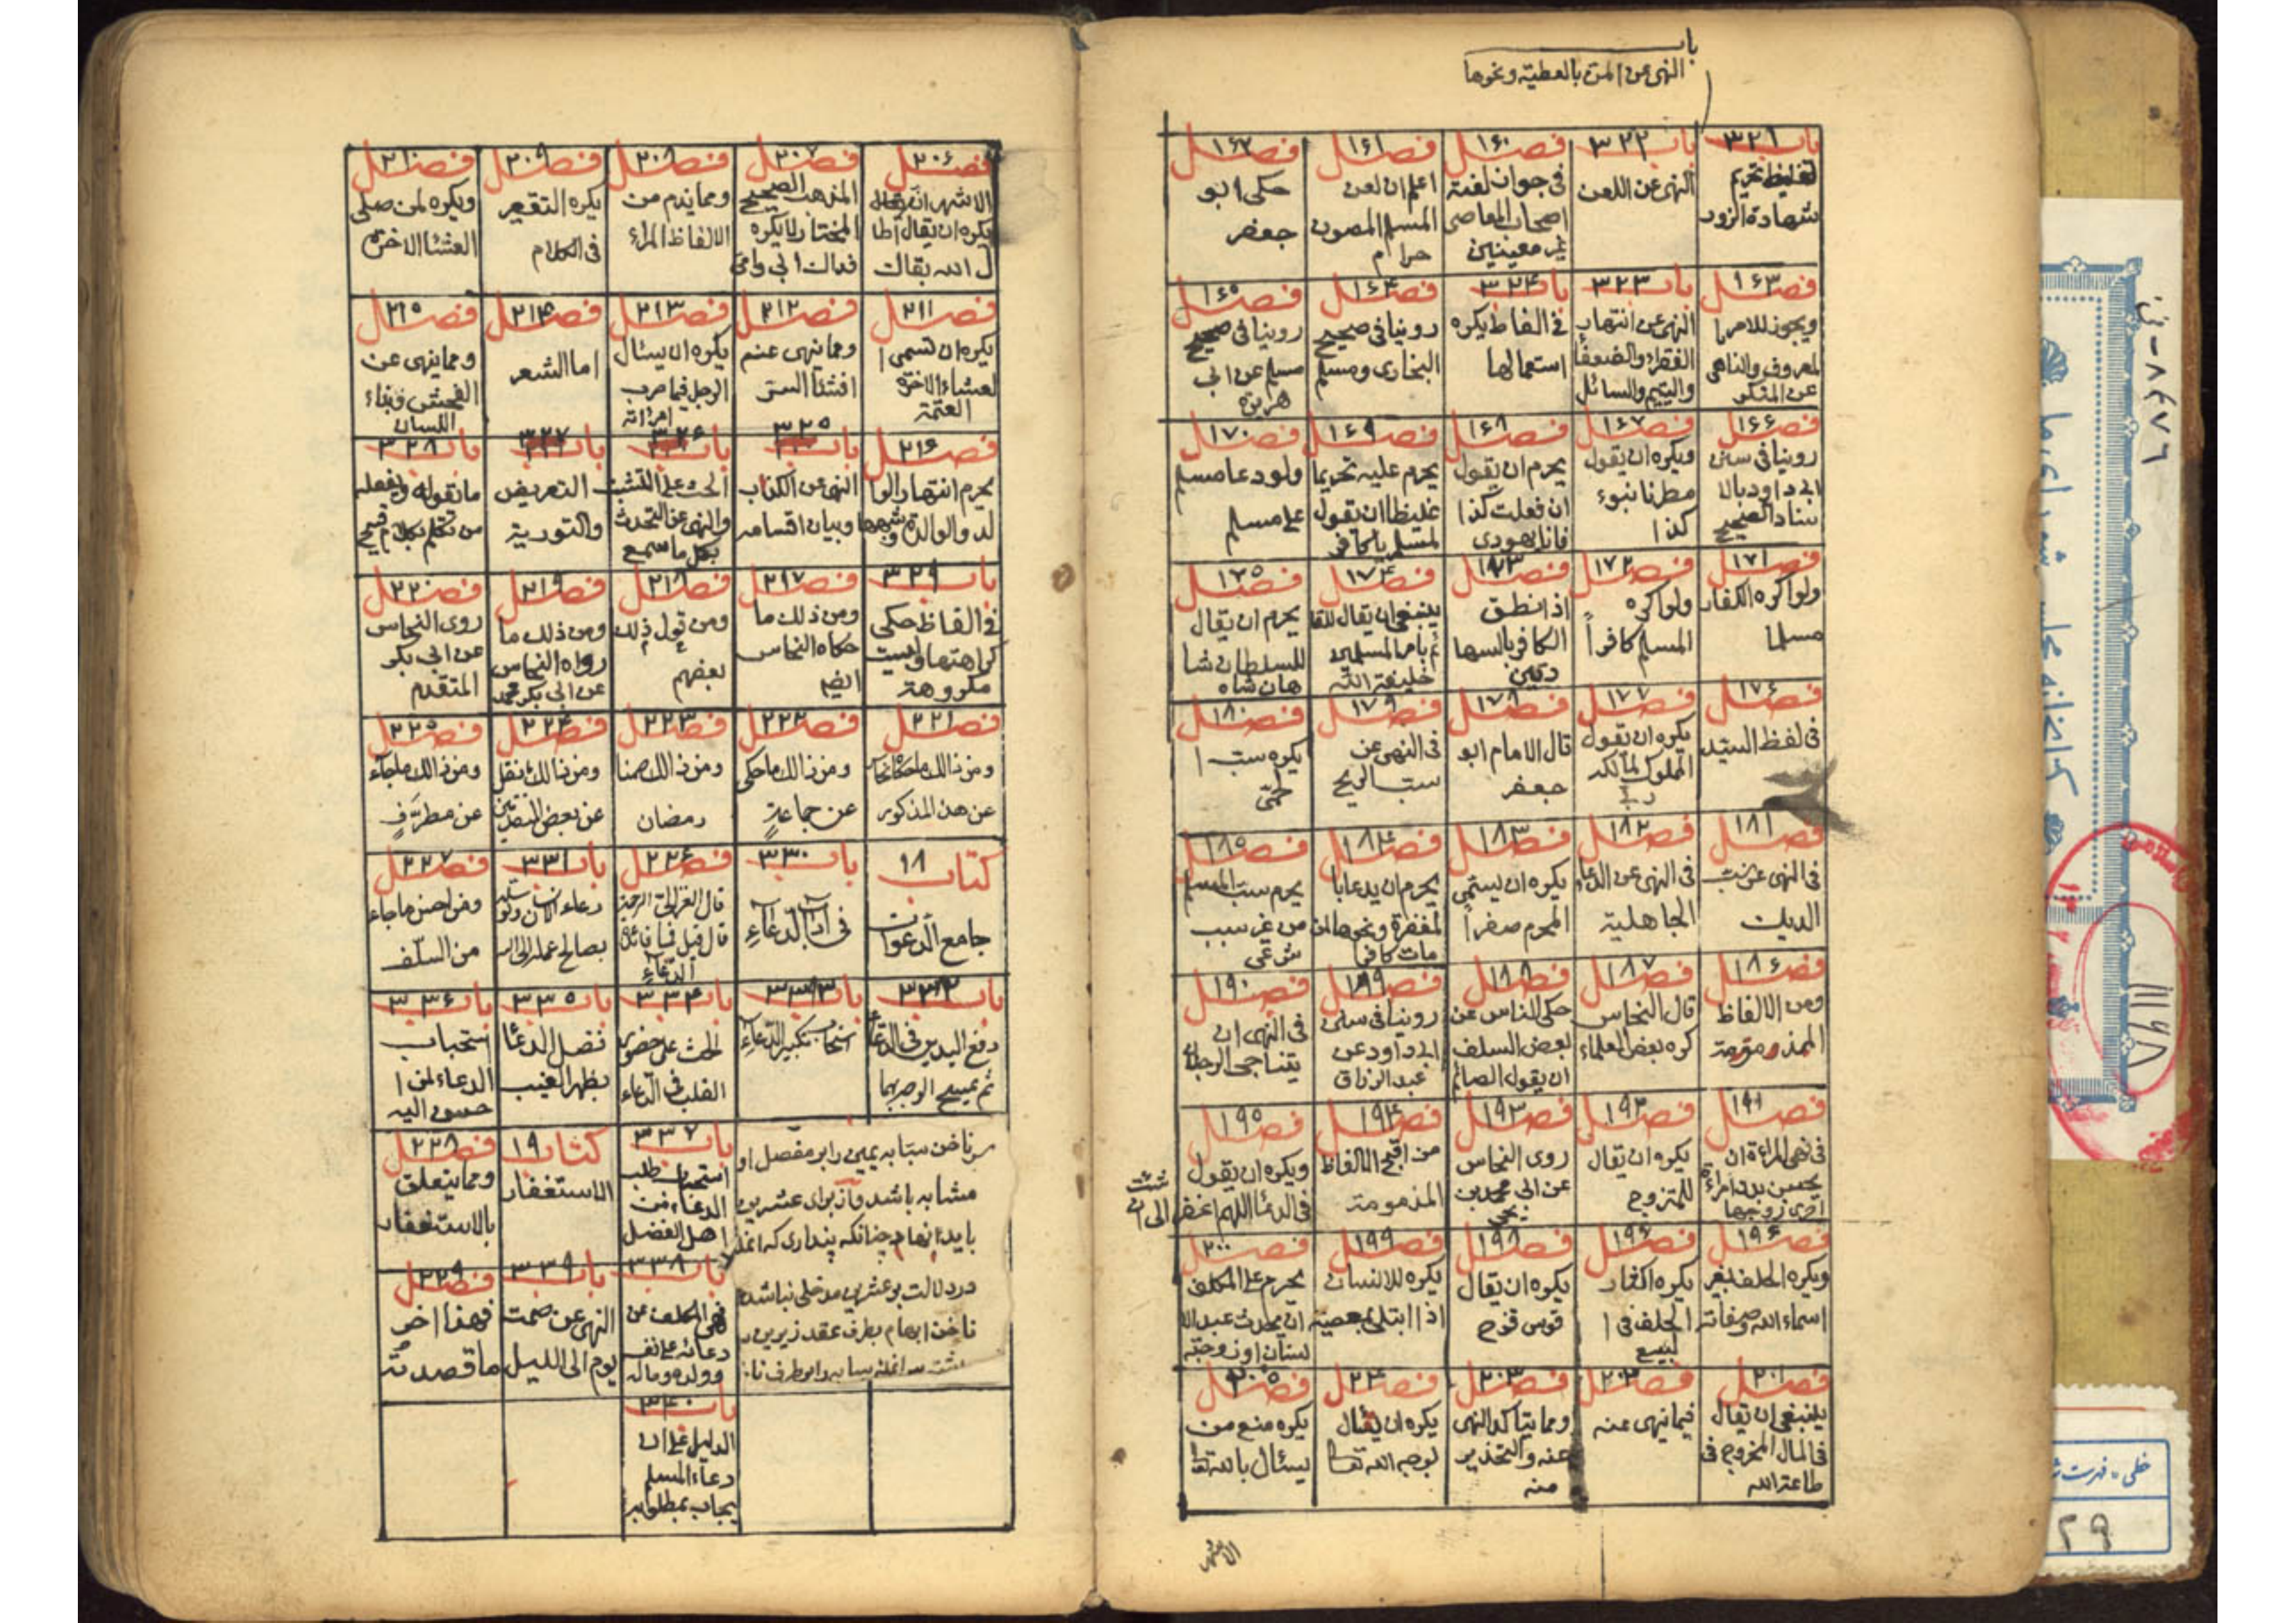 باب
النهى عن المن بالعطية ونحوها
باب ٣٢١
تغليظ تحريم
شهادة الزور
باب ٣٢٢
النهى عن اللعن
فصل ١۶٠
فى جوان لعنة
اصحاب المعاصى
غير معينين
فصل ١۶١
اعلم ان لعن
المسلم المصون
حرام
فصل ١۶٢
حكى ابو
جعفر
فصل ١۶٣
ويجوز للامر با
لمعروف والناهى
عن المنكر
باب ٣٢٣
النهى عن انتهار
الفقراء والضعفا
واليتيم والسائل
باب ٣٢۴
فى الفاظ يكره
استعمالها
فصل ١۶۴
روينا فى صحيح
البخارى ومسلم
فصل ١۶۵
روينا فى صحيح
مسلم عن ابى
هريرة
فصل ١۶۶
روينا فى سنن
ابى داود بالا
سناد الصحيح
فصل ١۶٧
ويكره ان يقول
مطرنا بنوء
كذا
فصل ١۶٨
يحرم ان يقول
ان فعلت كذا
فانا يهودى
فصل ١۶٩
يحرم عليه تحريما
غليظا ان يقول
لمسلم يا كافر
فصل ١٧٠
ولو دعا مسلم
على مسلم
فصل ١٧١
ولو اكره الكفار
مسلما
فصل ١٧٢
ولو اكره
المسلم كافراً
فصل ١٧٣
اذ انطق
الكافر بالسها
دتين
فصل ١٧۴
ينبغى ان يقال للقا
ئم بامر المسلمين
خليفة الله
فصل ١٧۵
يحرم ان يقال
للسلطان شا
هان شاه
فصل ١٧۶
فى لفظ السيد
فصل ١٧٧
يكره ان يقول
المملوك لمالكه
ربى
فصل ١٧٨
قال الامام ابو
جعفر
فصل ١٧٩
فى النهى عن
سب الريح
فصل ١٨٠
يكره سب ا
لحمى
فصل ١٨١
فى النهى عن سب
الديك
فصل ١٨٢
فى النهى عن الدعاء
الجاهلية
فصل ١٨٣
يكره ان يسمى
المحرم صفراً
فصل ١٨۴
يحرم ان يدعا با
لمغفرة ونحوها لمن
مات كافرا
فصل ١٨۵
يحرم سب المسلم
من غير سبب
شرعى
فصل ١٨۶
ومن الالفاظ
المذمومة
فصل ١٨٧
قال النحاس
كره بعض العلماء
فصل ١٨٨
حكى النحاس عن
بعض السلف
ان يقول الصائم
فصل ١٨٩
روينا فى سنن
ابى داود عن
عبد الرزاق
فصل ١٩٠
فى النهى ان
يتناجى الرجلان
فصل ١٩١
فى نهى المراءة ان
بدن امراءة
اخرى زوجها
فصل ١٩٢
يكره ان يقال
للمتزوج
فصل ١٩٣
روى النحاس
عن ابى محمد بن
يحيى
فصل ١٩۴
من اقبح الالفاظ
المذمومة
فصل ١٩۵
ويكره ان يقول
فى الدعا اللهم اغفر لى ان
شئت
فصل ١٩۶
ويكره الحلف بغير
اسماء الله وصفاته
فصل ١٩۶
يكره اكثار
الحلف فى ا
لبيع
فصل ١٩٨
يكره ان يقال
قوس قزح
فصل ١٩٩
يكره للانسان
اذا ابتلى بمعصية
فصل ٢٠٠
يحرم على المكلف
ان يحدث عبد الا
نسان او زوجته
فصل ٢٠١
ينبغى ان يقال
فى المال المخروج فى
طاعة الله
فصل ٢٠٢
فيما نهى عنه
فصل ٢٠٣
ومما يتاكد النهى
عنه والتحذير
منه
فصل
يكره ان يسئال
لوجه الله تعا
فصل ٢٠۵
يكره منع من
يسئال بالله تعا
الاشهر
فصل ٢٠۶
الاشهر انه
يكره ان يقال اطا
ل الله بقاك
فصل ٢٠٧
المذهب الصحيح
المختار لا يكره
فداك ابى وامى
فصل ٢٠٨
ومما يذم من
الالفاظ المراء
فصل ٢٠٩
يكره التقعير
فى الكلام
فصل ٢١٠
ويكره لمن صلى
العشا الاخرة
فصل ٢١١
يكره ان تسمى ا
لعشاء الاخرة
العتمة
فصل ٢١٢
ومما ينهى عنه
افشا السر
فصل ٢١٣
يكره ان يسئال
الرجل فيما ضرب
امراته
فصل ٢١۴
اما الشعر
فصل ٢١۵
ومما ينهى عن
الفحش وبذاء
اللسان
فصل ٢١۶
يحرم انتهار الوا
لد والوالدة وشبهها
باب ٣٢۵
النهى عن الكذب
وبيان اقسامه
باب ٣٢۶
الحث على التثبت
والنهى عن التحدث
بكل ما سمع
باب ٣٢٧
التعريض
والتورية
باب ٣٢٨
ما يقوله ويفعله
من تكلم بكلام قبيح
باب ٣٢٩
فى الفاظ حكى
كراهتها وليست
مكروهة
فصل ٢١٧
ومن ذلك ما
حكاه النحاس
ايضا
فصل ٢١٨
ومن قول ذلك
بعضهم
فصل ٢١٩
ومن ذلك ما
رواه النحاس
عن ابى بكر محمد
فصل ٢٢٠
روى النحاس
عن ابى بكر
المتقدم
فصل ٢٢١
ومن ذالك ما حكاه
عن هذ المذكور
فصل ٢٢٢
ومن ذالك ما حكى
عن جماعةٍ
فصل ٢٢٣
ومن ذالك صمنا
رمضان
فصل ٢٢۴
ومن ذالك نقل
عن بعض المتقدمين
فصل ٢٢۵
ومن ذالك ما جاء
عن مطرَّفٍ
كتاب ١٨
جامع الدّعوات
باب ٣٣٠
فى اداب الدعاء
فصل ٢٢۶
قال الغزالى
قال قيل فما فائدة
الدعاء
باب ٣٣١
دعاء الانسان وتوسله
بصالح عمله الى الله
فصل ٢٢٧
ومن احسن ما جاء
من السلف
باب ٣٣٢
رفع اليدين فى الدعا
ثم يمسح الوجه بهما
باب ٣٣٣
استحباب تكرير الدعاء
باب ٣٣۴
الحث على حضور
القلب فى الدعاء
باب ٣٣۵
فضل الدعا
بظهر الغيب
باب ٣٣۶
استحباب
الدعاء لمن ا
حسن اليه
سر ناخن سبابه يمين را بر مفصل او
مشابه باشد واز براى عشرين
بايد ابهام چنانكه پندارى كه انمله
در دلالت بر عشرين مدخلى نباشد
ناخن ابهام بطرف عقد زيرين
باب ٣٣٧
استحباب طلب
الدعاء من
اهل الفضل
كتاب ١٩
الاستغفار
فصل ٢٢٨
ومما يتعلق
بالاستغفار
باب ٣٣٨
نهى المكلف عن
دعائه على نفسه
وولده وماله
باب ٣٣٩
النهى عن صمت
يوم الى الليل
فصل ٢٢٩
فهذا اخر
ما قصدته
باب ٣۴٠
الدليل على ان
دعاء المسلم
يجاب بمطلوبه
١١١۶٨
خطى - فهرست